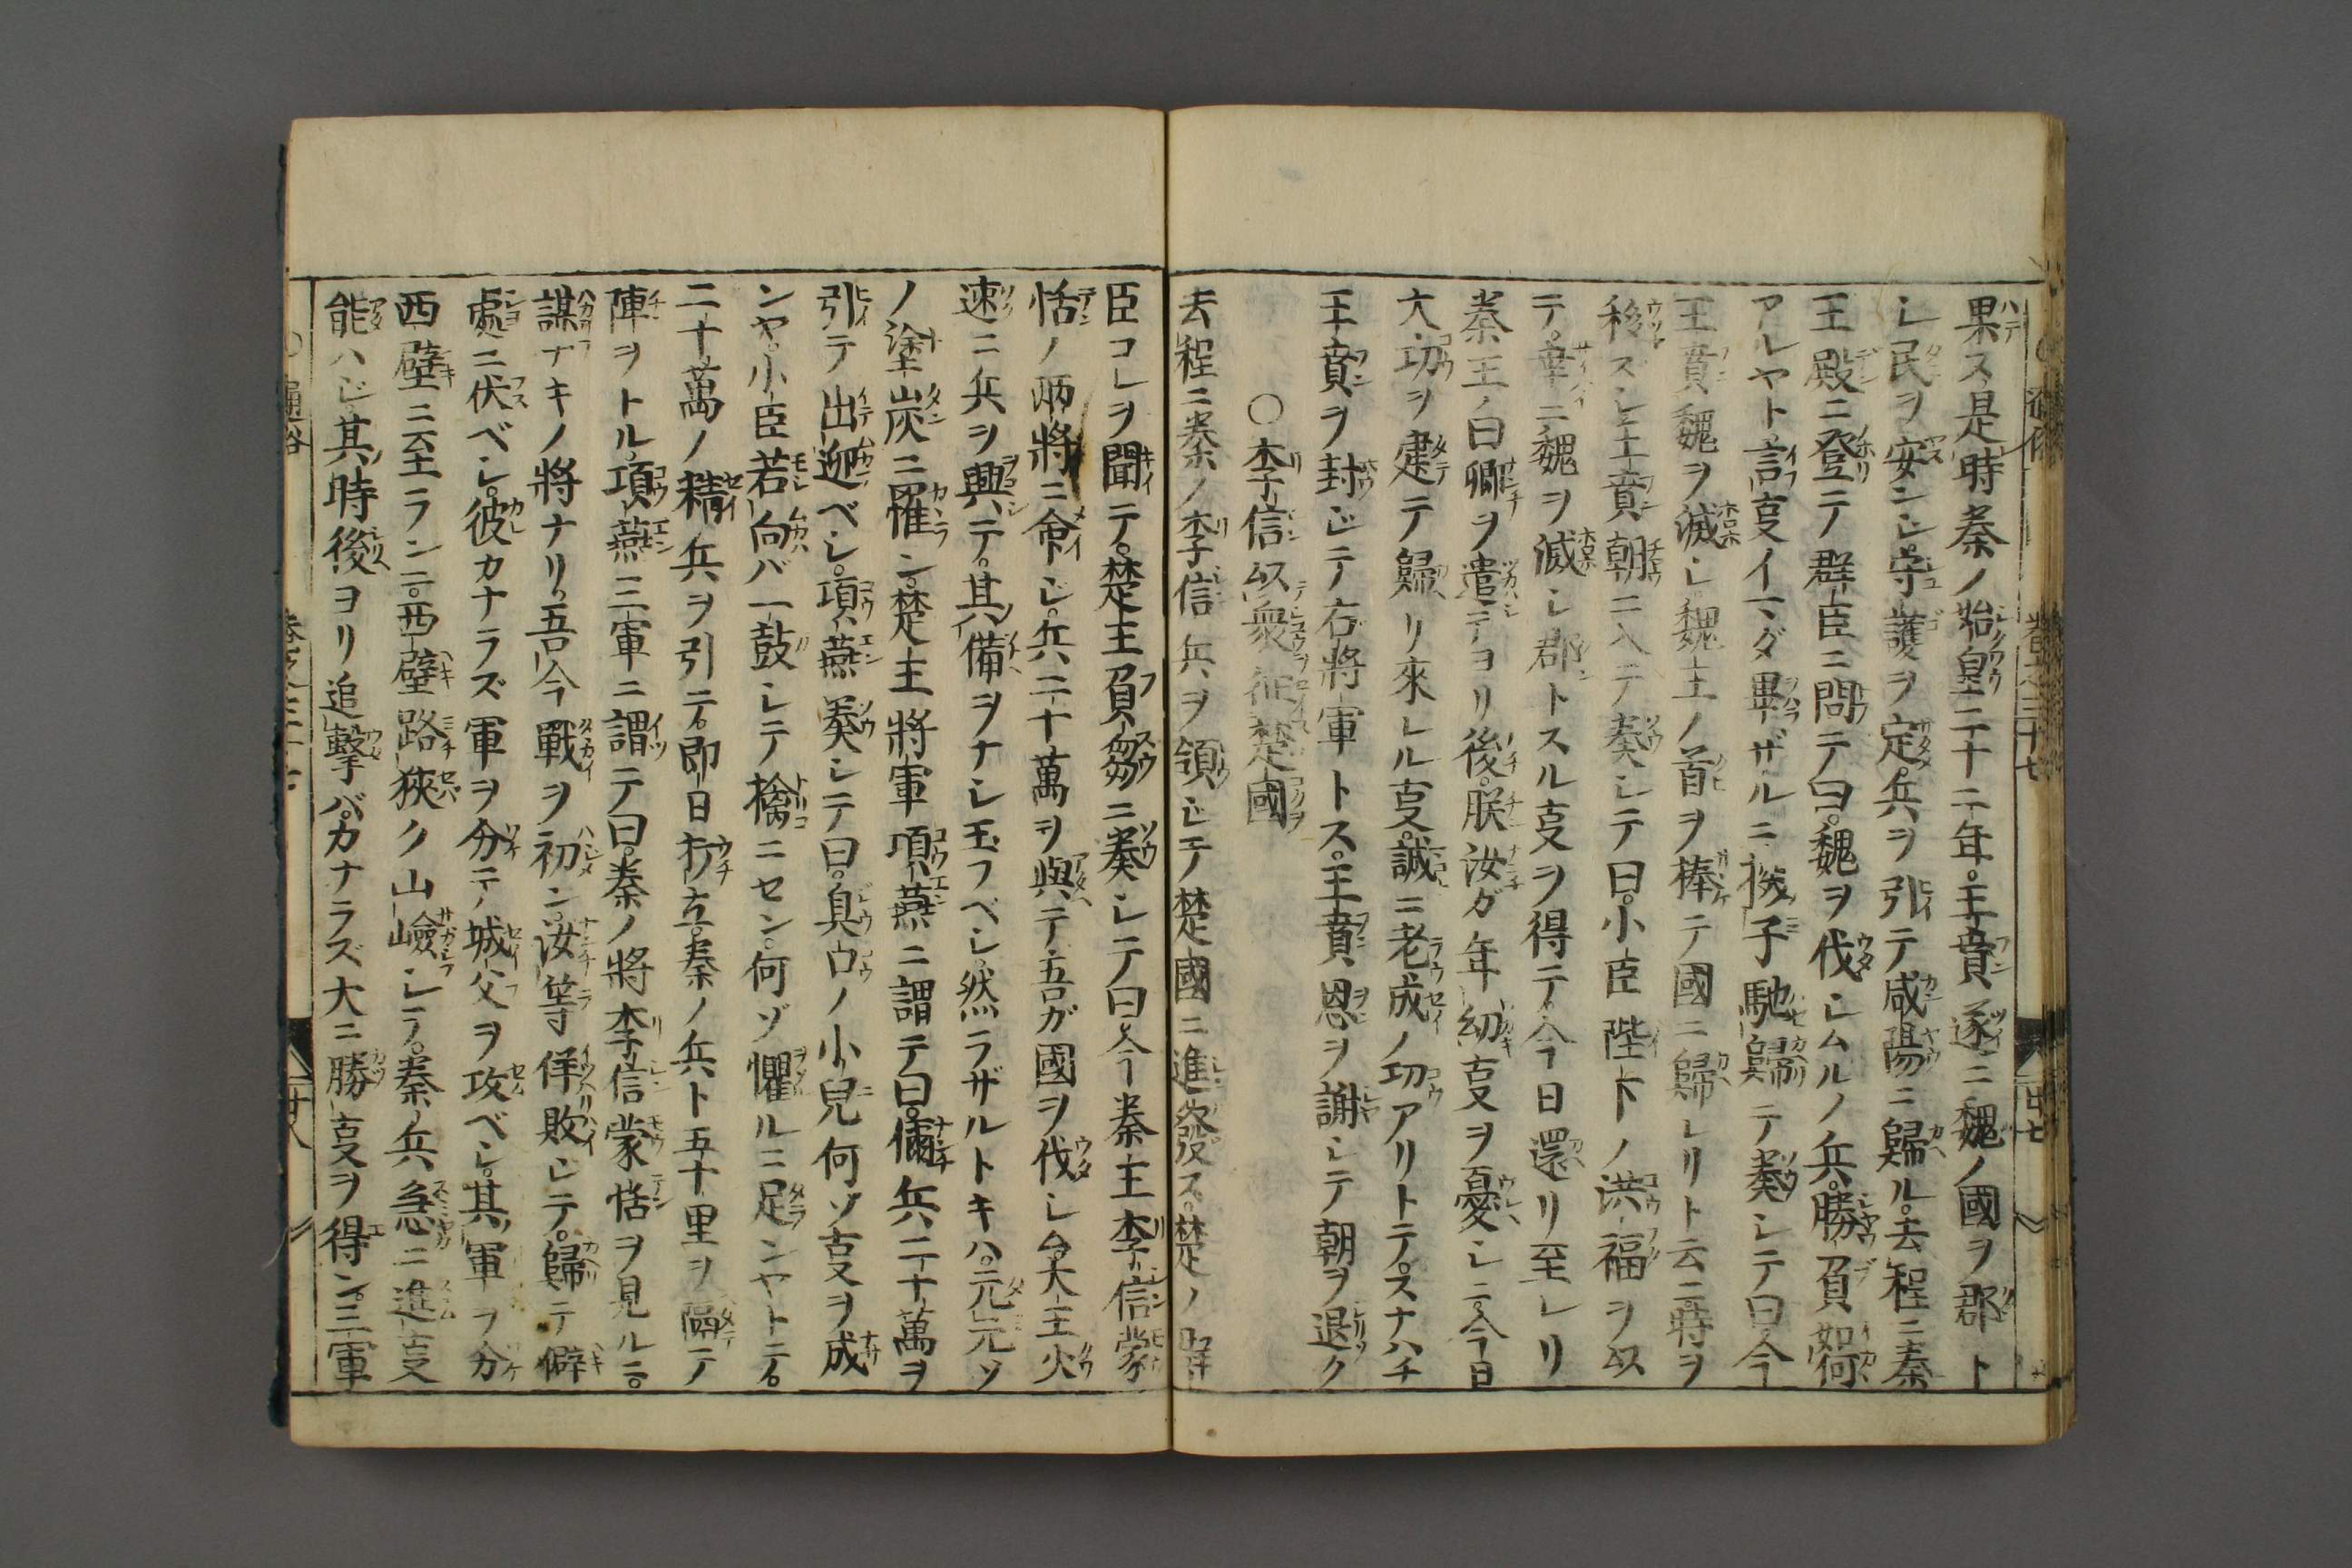 果ス是時秦ノ始皇二十二年。王賁遂ニ魏ノ國ヲ郡ト
シ民ヲ安ンジ。守護ヲ定。兵ヲ引テ咸陽ニ歸ル。去程ニ秦
王殿ニ登テ群臣ニ問テ曰。魏ヲ伐シムルノ兵。勝負如何
アルヤト言㕝イマダ畢ザルニ。機子馳歸テ奏シテ曰今
王賁魏ヲ滅シ魏王ノ首ヲ捧テ國ニ歸レリト云ニ時ヲ
移スシ王賁朝ニ入テ奏シテ曰。小臣陛下ノ洪福ヲ以
テ。幸ニ魏ヲ滅シ郡トスル㕝ヲ得テ。今日還リ至レリ
秦王ノ曰卿ヲ遣テヨリ後。朕汝ガ年幼㕝ヲ憂シニ。今日
大功ヲ建テ歸リ來レル㕝。誠ニ老成ノ功アリトテ。スナハチ
王賁ヲ封ジテ右將軍トス。王賁恩ヲ謝シテ朝ヲ退ク
○李信以衆征楚國
去程ニ秦ノ李信兵ヲ領シテ楚國ニ進發ス。楚ノ
臣コレヲ聞テ。楚王負芻ニ奏シテ曰今秦主李信蒙
恬ノ兩將ニ命ジ。兵二十萬ヲ與テ吾ガ國ヲ伐シム大王火
速ニ兵ヲ興テ。其備ヲナシ玉フベシ。然ラザルトキハ。元元ソ
ノ塗炭ニ罹ン。楚王將軍項燕ニ謂テ曰。儞兵二十萬ヲ
引テ出迎ベシ。項燕奏シテ曰。臭口ノ小兒何ゾ㕝ヲ成
ンヤ。小臣若向バ一鼓シテ擒ニセン。何ゾ懼ルニ足ンヤトテ。
二十萬ノ精兵ヲ引テ。即日打立。秦ノ兵ト五十里ヲ隔テ
陣ヲトル。項燕三軍ニ謂テ曰。秦ノ將李信蒙恬ヲ見ルニ。
謀ナキノ將ナリ。吾今戰ヲ初ン。汝等佯敗シテ。歸テ僻
處ニ伏ベシ。彼カナラズ軍ヲ分テ城父ヲ攻ベシ。其軍ヲ分
西壁ニ至ランニ。西壁路狹ク山嶮シテ。秦ノ兵急ニ進㕝
能ハジ。其時後ヨリ追擊バ。カナラズ大ニ勝㕝ヲ得ン。三軍